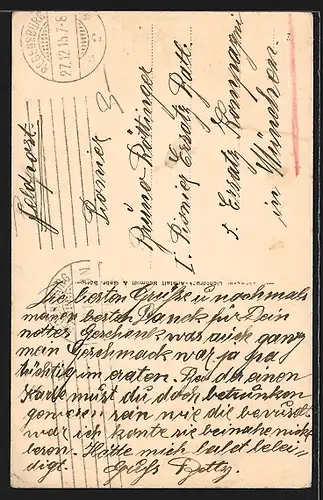 REGENSBURG
27.12.15.7-8
Feldpost.
Pionier
Bruno Röttinger
I. Pionier Ersatz Batl.
Ersatz Kompagni
in München.
Die besten Grüße u. nochmals
meinen besten Danck für Dein
nettes Geschenk war auch ganz
mein Geschmack war ja fra
tüchtig im eraten. Bei der einen
Karte must du doch betrunken
gewesen sein wie die bewußt
war ich konte sie beinahe nicht
lesen. Hätte mich bald belei-
digt. Gruß Betty.